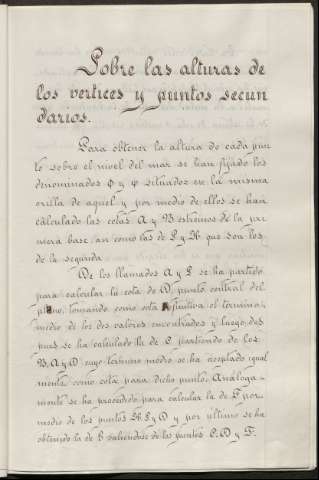 Sobre las alturas de
los vertices y puntos secun
darios.
Para obtener la altura de cada pun
to sobre el nivel del mar se han fijado los
denominados φ y φ situados en la misma
orilla de aquel y por medio de ellos se han
calculado las cotas A y B estremos de la pri
mera base, asi como las de L y R que son los
de la segunda.
De los llamados A y L se ha partido
para calcular la cota de D, punto central del
plano, tomando como cota definitiva el termino
medio de los dos valores encontrados y luego des
pues se ha calculado la de C partiendo de los
B, A y D cuyo termino medio se ha aceptado igual
mente como cota para dicho punto. Analoga-
mente se ha procedido para calcular la de F por
medio de los puntos R, L y D y por ultimo se ha
obtenido la de E valiendose de los puntos C, D y F.